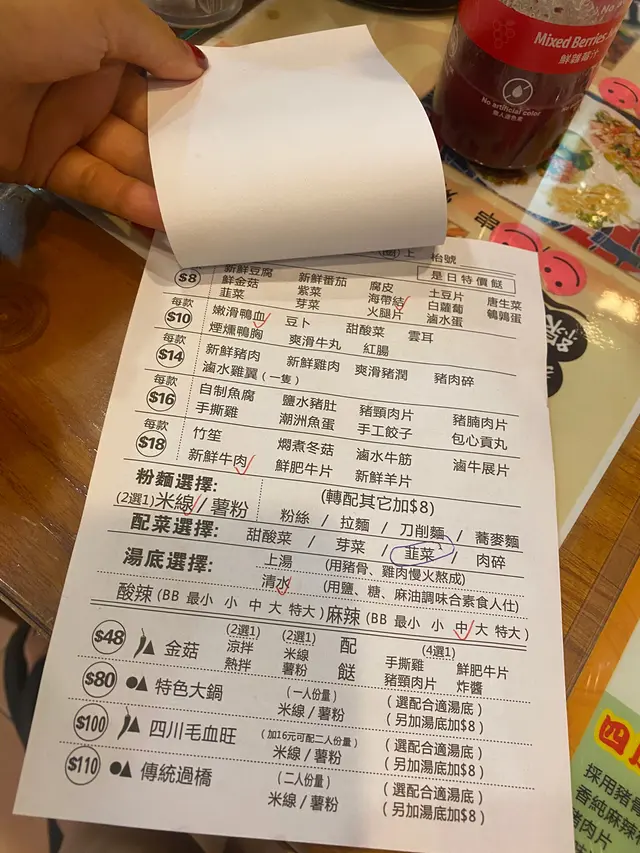 Mixed Berries
鮮雜莓汁
No artificial color
無人造色素
上 枱號
是日特價餸
$8
新鮮豆腐 新鮮番茄 腐皮 土豆片 唐生菜
鮮金菇 紫菜 海帶結 白蘿蔔 鵪鶉蛋
韮菜 芽菜 火腿片 滷水蛋
每款
$10
嫩滑鴨血 豆卜 甜酸菜 雲耳
煙燻鴨胸 爽滑牛丸 紅腸
每款
$14
新鮮豬肉 新鮮雞肉 爽滑豬潤 豬肉碎
滷水雞翼 (一隻)
每款
$16
自制魚腐 鹽水豬肚 豬頸肉片 豬腩肉片
手撕雞 潮洲魚蛋 手工餃子 包心貢丸
每款
$18
竹笙 燜煮冬菇 滷水牛筋 滷牛展片
新鮮牛肉 鮮肥牛片 新鮮羊片
粉麵選擇: (轉配其它加$8)
(2選1)米線 / 薯粉 粉絲 / 拉麵 / 刀削麵 / 蕎麥麵
配菜選擇: 甜酸菜 / 芽菜 / 韮菜 / 肉碎
湯底選擇: 上湯 (用豬骨、雞肉慢火熬成)
清水 (用鹽、糖、麻油調味合素食人仕)
酸辣 (BB 最小 小 中 大 特大) 麻辣 (BB 最小 小 中 大 特大)
$48 金菇 (2選1) (2選1) 配 (4選1)
涼拌 米線 手撕雞 鮮肥牛片
熱拌 薯粉 餸 豬頸肉片 炸醬
$80 特色大鍋 (一人份量) (選配合適湯底)
米線 / 薯粉 (另加湯底加$8)
$100 四川毛血旺 (加16元可配二人份量) (選配合適湯底)
米線 / 薯粉 (另加湯底加$8)
$110 傳統過橋 (二人份量) (選配合適湯底)
米線 / 薯粉 (另加湯底加$8)
四
採用豬
香純麻辣
豬肉片